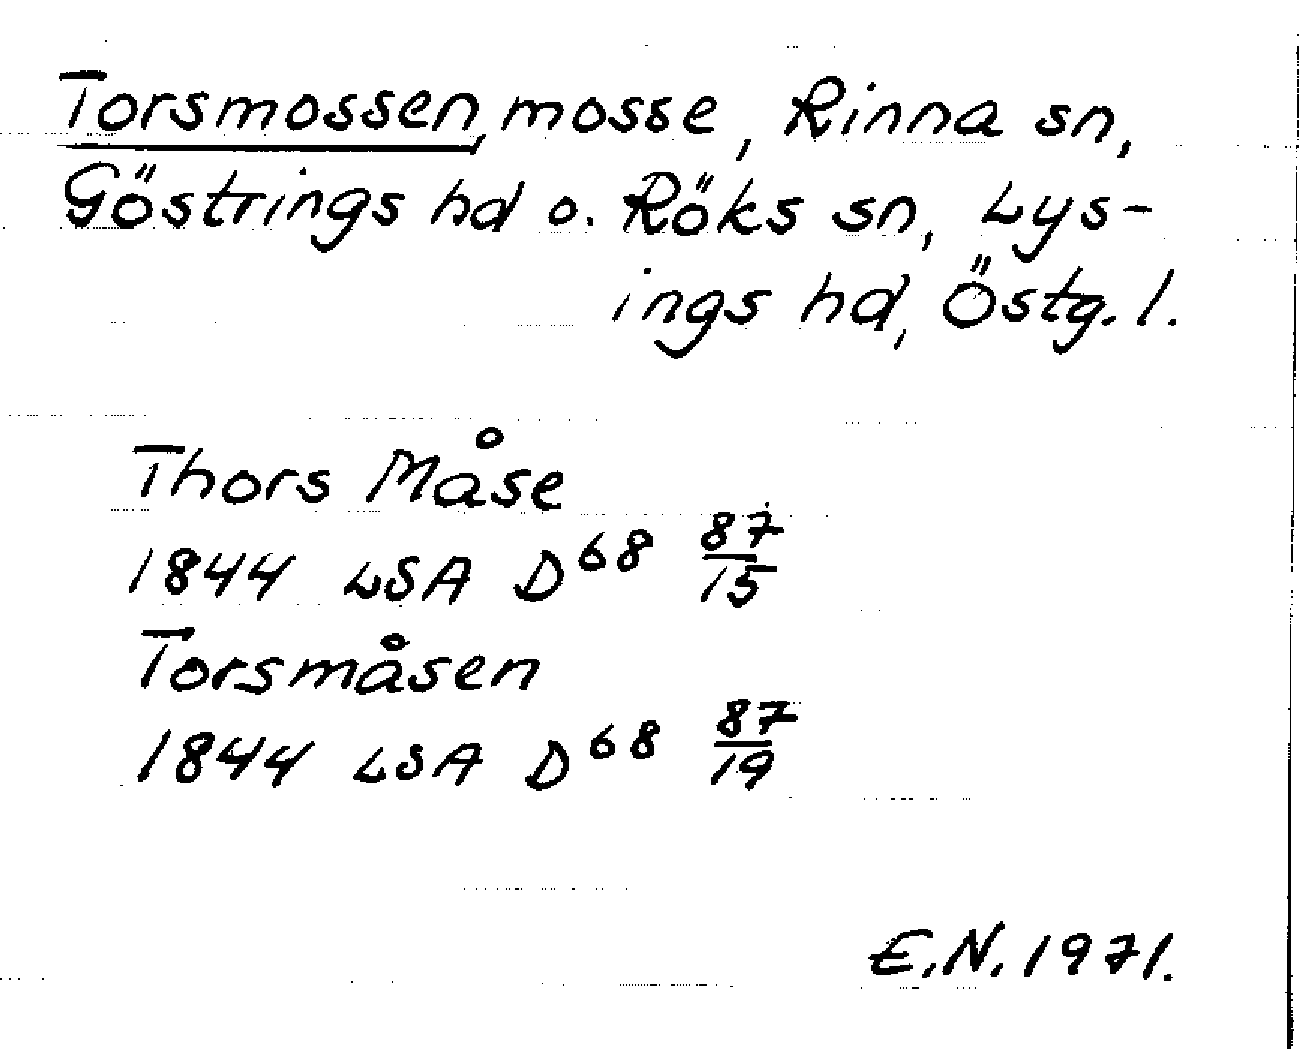 Torsmossen, mosse, Rinna sn,
Göstrings hd o. Röks sn, Lys-
ings hd, Östg. l.
Thors Måse
1844 LSA D68 87/15
Torsmåsen
1844 LSA D68 87/19
E.N. 1971.